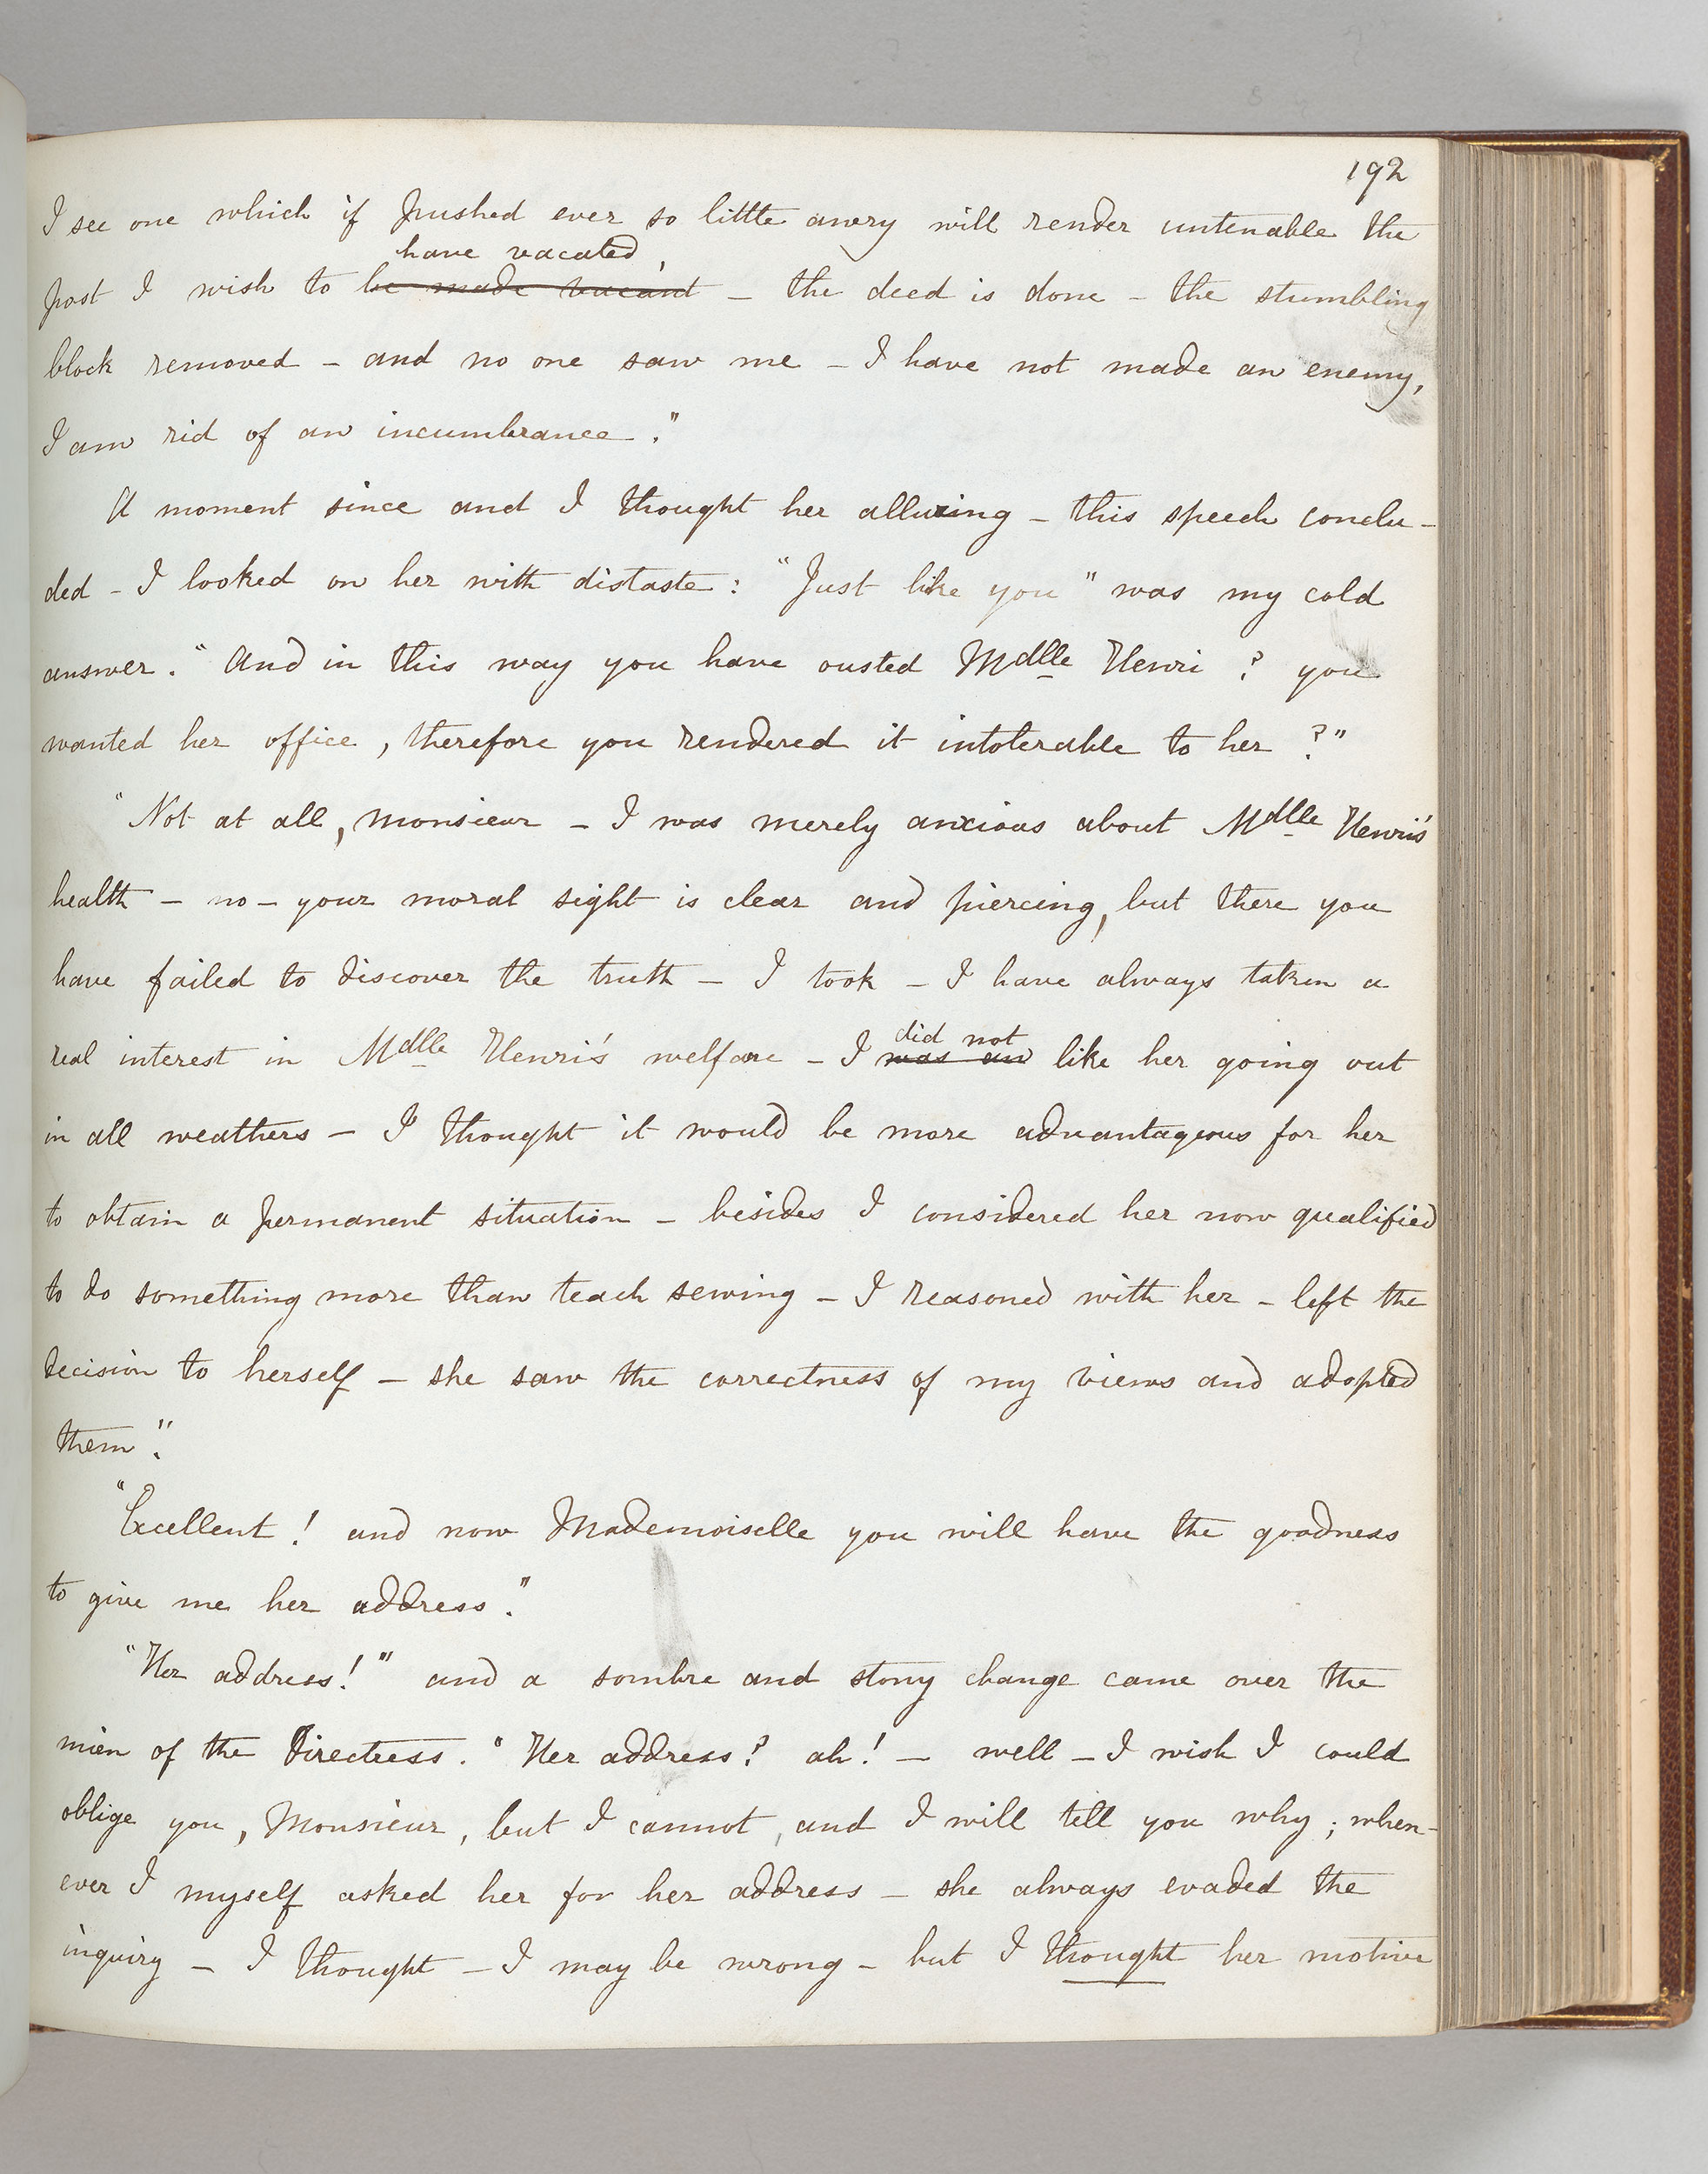 192
I see one which if pushed ever so little awry will render untenable the
have vacated,
post I wish to be made vacant – the deed is done – the stumbling
block removed – and no one saw me – I have not made an enemy,
I am rid of an incumbrance."
A moment since and I thought her alluring – this speech conclu-
ded – I looked on her with distaste: "Just like you" was my cold
answer. "And in this way you have ousted Mdlle Henri? you
wanted her office, therefore you rendered it intolerable to her?"
"Not at all, monsieur – I was merely anxious about Mdlle Henri's
health – no – your moral sight is clear and piercing, but there you
have failed to discover the truth – I took – I have always taken a
did not
real interest in Mdlle Henri's welfare – I was an like her going out
in all weathers – I thought it would be more advantageous for her
to obtain a permanent situation – besides I considered her now qualified
to do something more than teach sewing – I reasoned with her – left the
decision to herself – she saw the correctness of my views and adopted
them".
"Excellent! and now Mademoiselle you will have the goodness
to give me her address."
"Her address!" and a sombre and stony change came over the
mien of the Directress. "Her address? ah! – well – I wish I could
oblige you, Monsieur, but I cannot, and I will tell you why; when-
ever I myself asked her for her address – she always evaded the
inquiry – I thought – I may be wrong – but I thought her motive